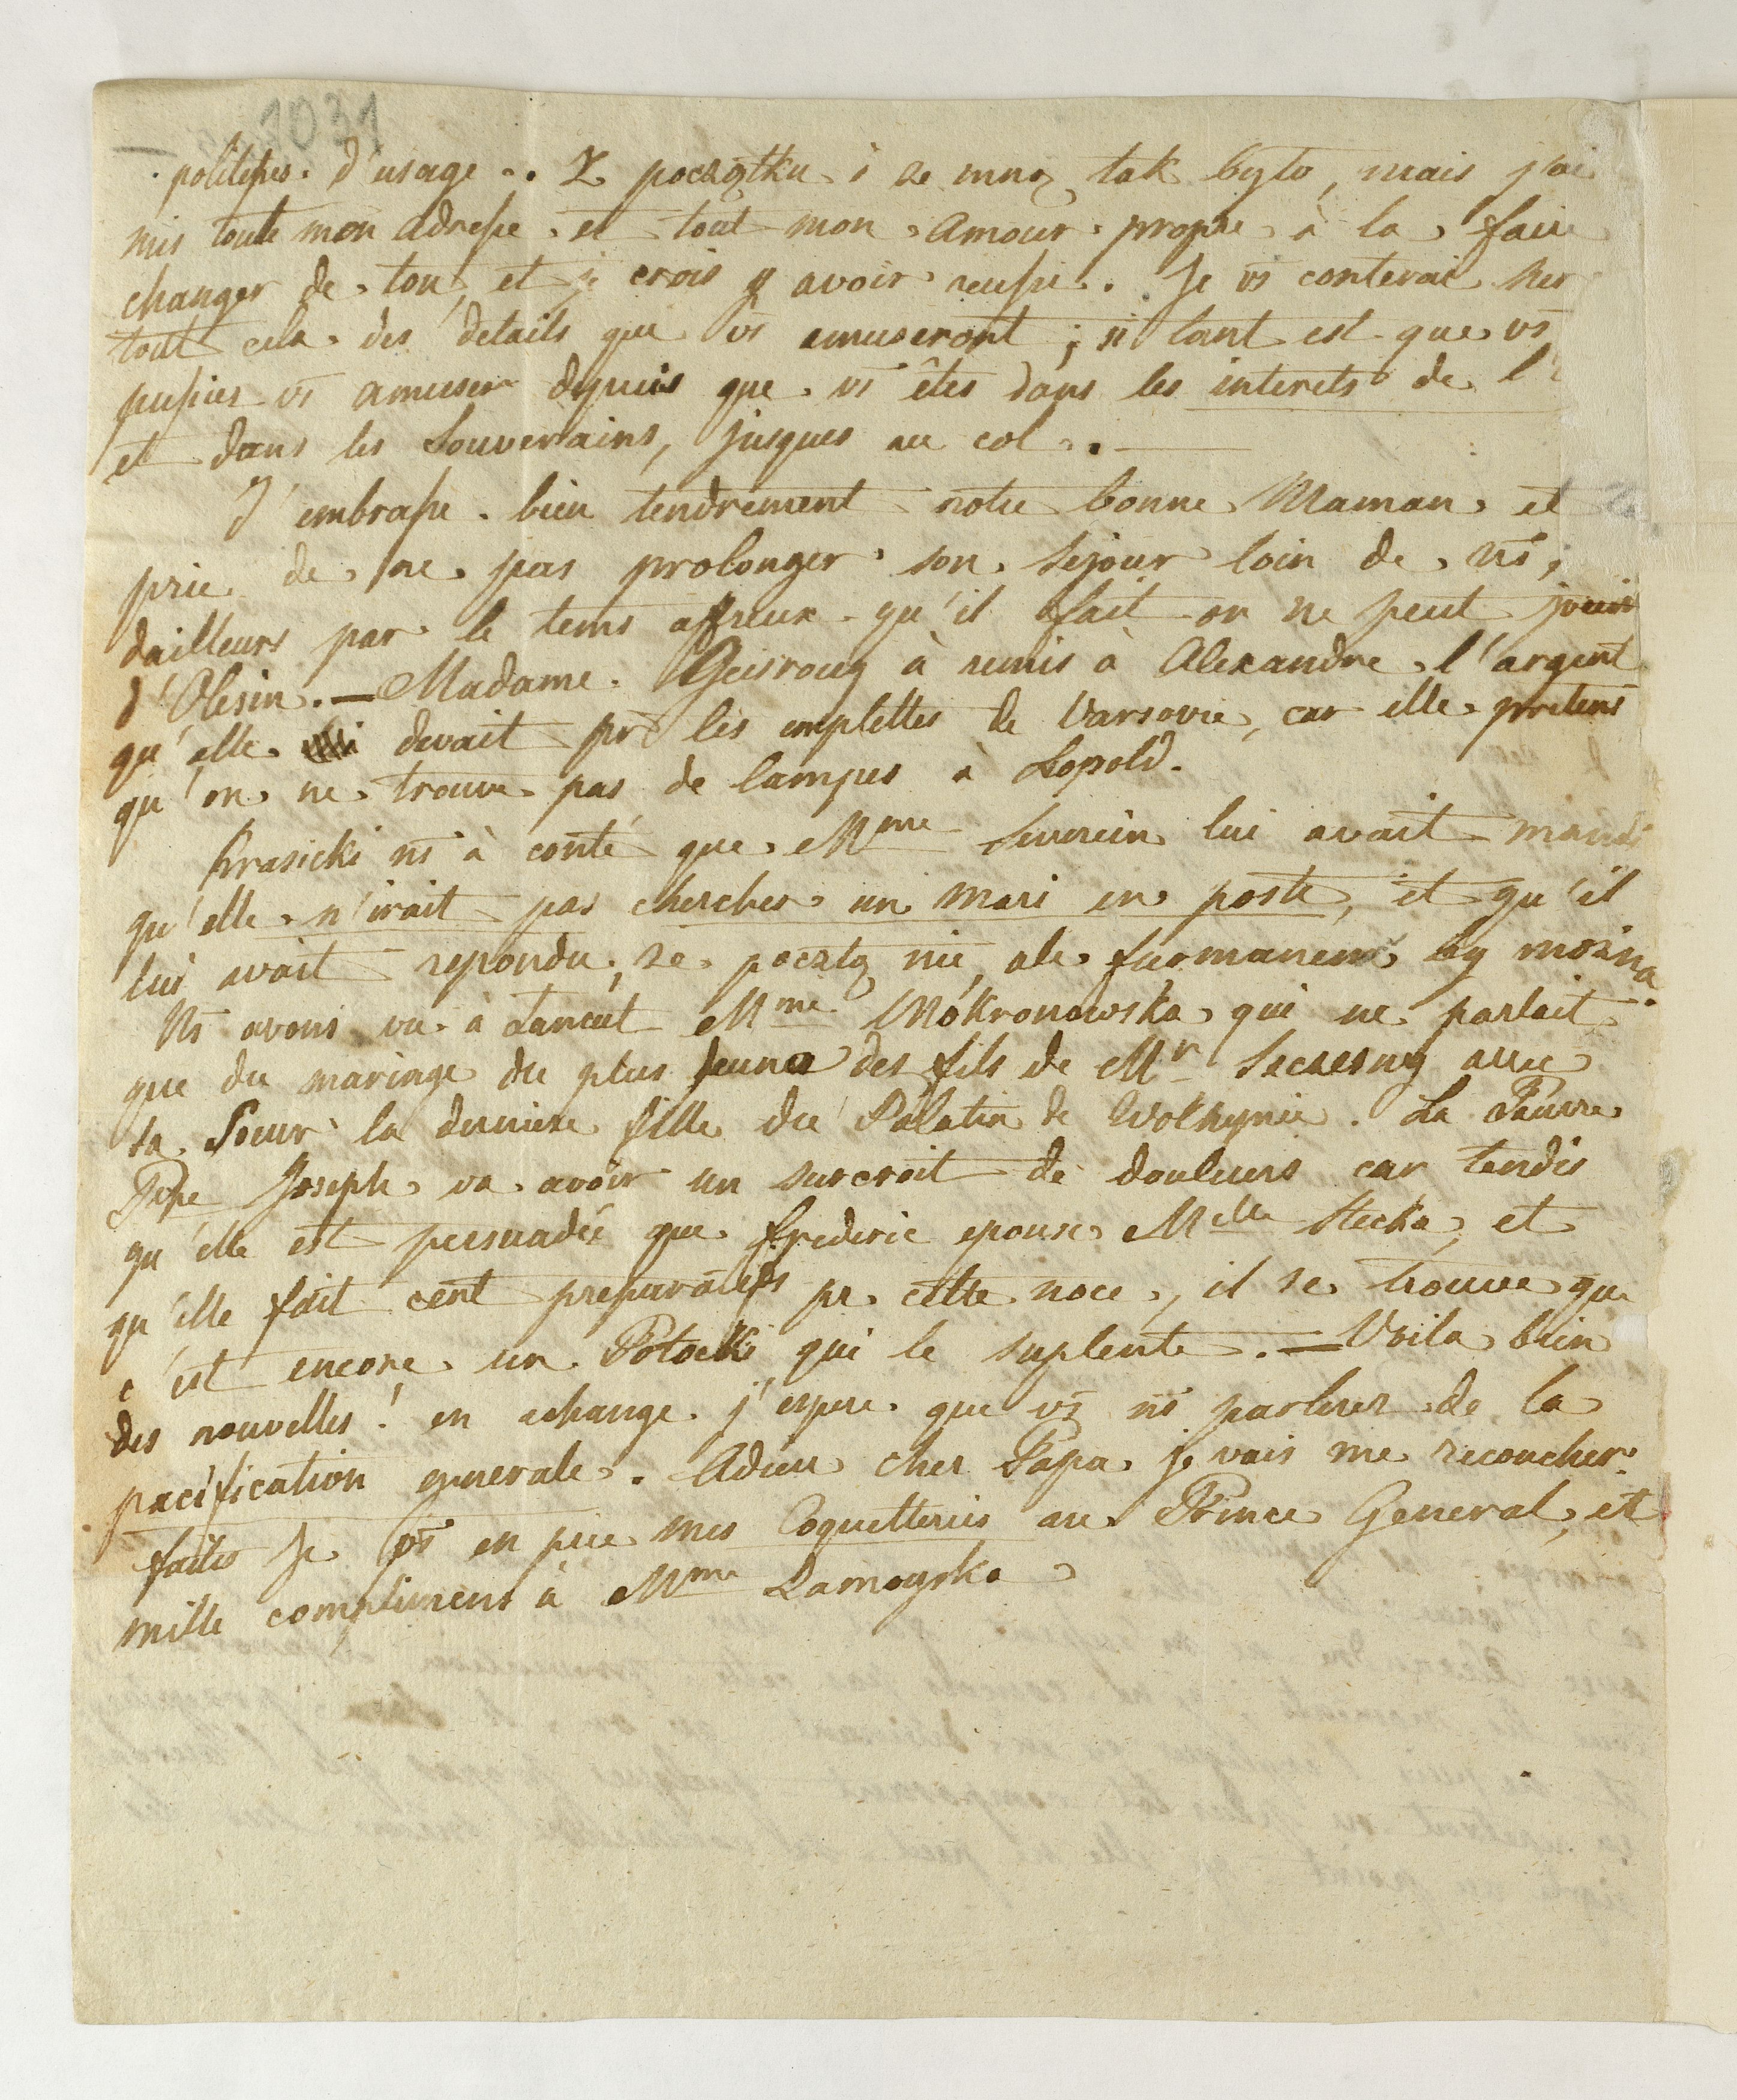 1031
politesses d'usage .. Z początku i ze mną tak było, mais j'ai
mis toute mon adresse et tout mon amour propre à la faire
changer de ton, et je crois y avoir reussi. Je vs conterai sur
tout cela des details que vs amuseront; si tant est que vs
puissies vs amuser depuis que vs êtes dans les interets de l'
et dans les Souverains, jusques au col. —
J'embrasse bien tendrement notre bonne Maman et
prie de ne pas prolonger son sejour loin de ns,
dailleurs par le tems affreux qu'il fait on ne peut jouir
d'Olesin. — Madame à remis à Alexandre l'argent
qu'elle devait pr les emplettes de Varsovie, car elle pretens
qu'on ne trouve pas de lampes à Leopold.
Krasicki ns à conté que Mme Severin lui avait mandé
qu'elle n'irait pas chercher un mari en poste, et qu'il
lui avait repondu, ze pocztą nie, ale furmanem by można.
Ns avons vu à Lancut Mme Mokronowska qui ne parlait
que du mariage du plus jeune des fils de Mr Szczesny avec
sa Soeur la derniere fille du Palatin de Wolhynie. La Pauvre
Psse Joseph va avoir un surcroit de douleurs car tandis
qu'elle est persuadée que Frederic epouse Melle Stecka, et
qu'elle fait cent preparatifs pr cette noce, il se trouve que
c'est encore un Potocki qui le suplente. — Voila bien
des nouvelles! en echange j'espere que vs ns parlerez de la
pacification generale. Adieu cher Papa je vais me recoucher.
faites Je vs en prie mes Coquetteries au Prince General, et
mille complimens à Mme Zamoyska